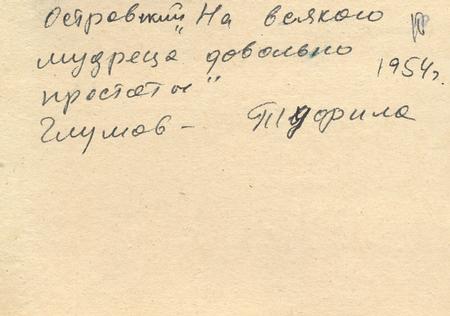 Островский „На всякого
мудреца довольно
простоты"
1954г.
Глумов –